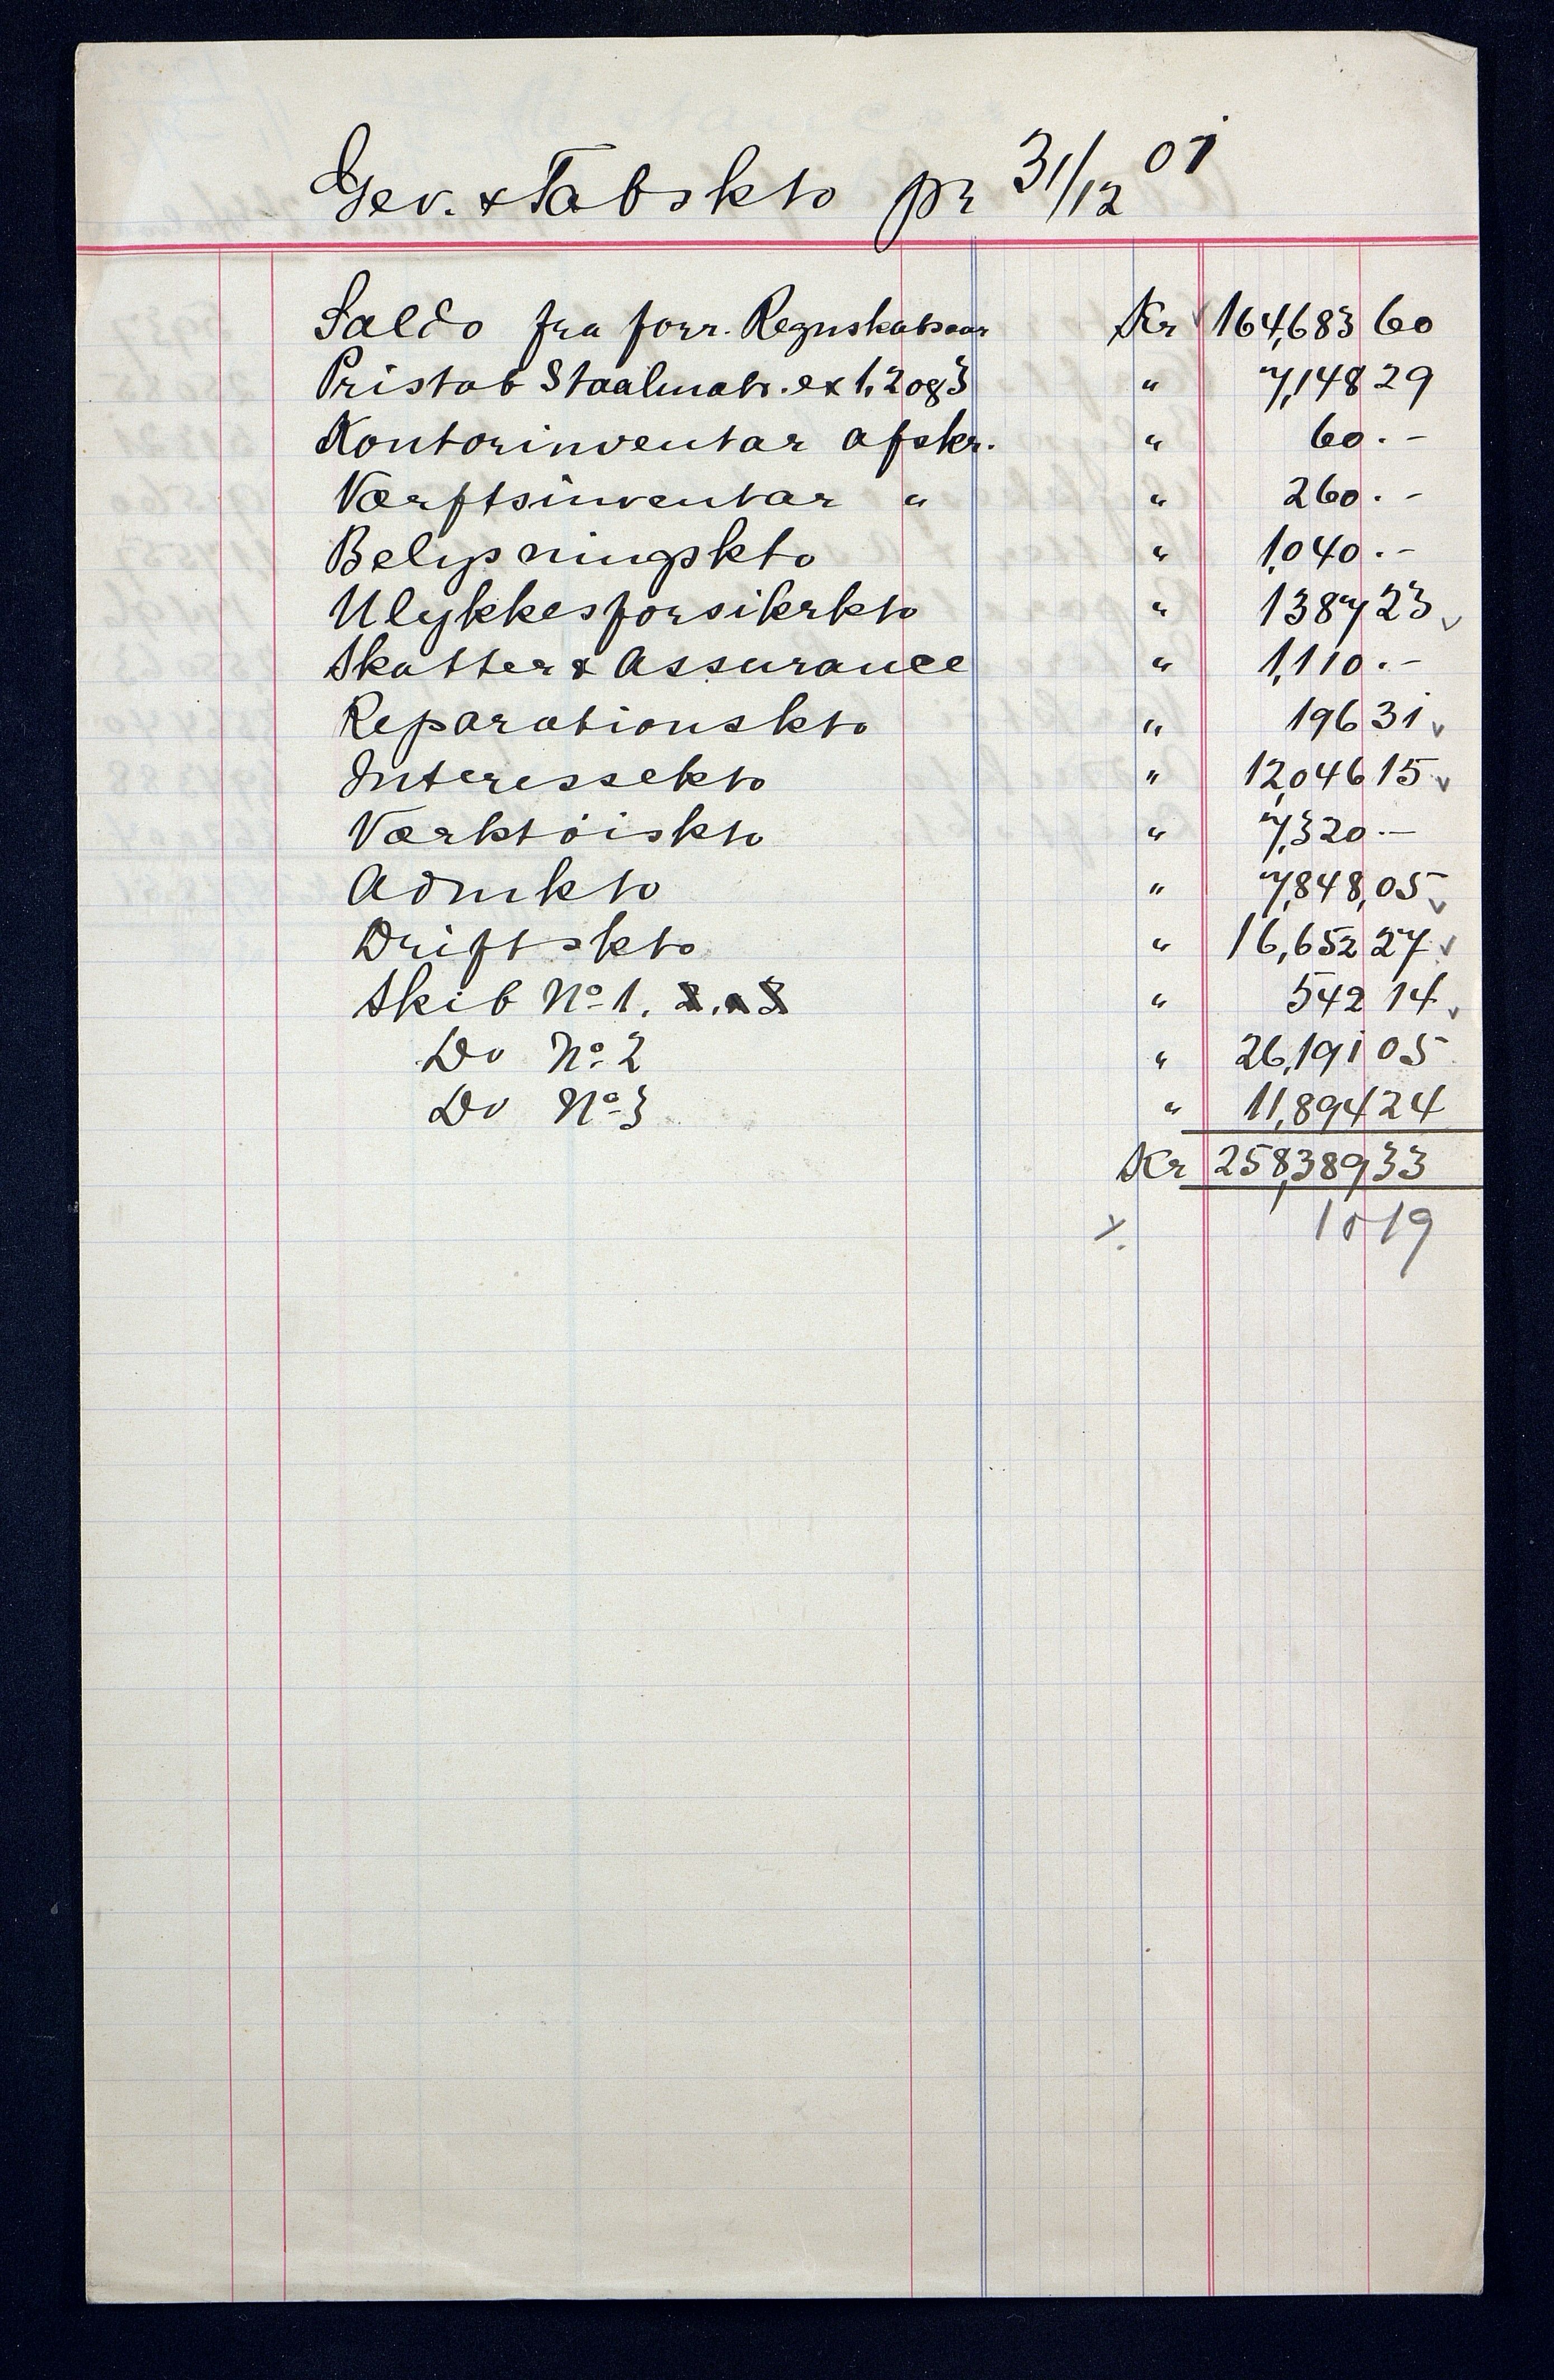 Gev. & Tabskto pr 31/12 01
Saldo fra forr. Regnskabsaar Kr 164,683 60
Pristab Staalmatr. ex 1, 2 og 3 " 7,148 29
Kontorinventar afskr. " 60. -
Værftsinventar " " 260. -
Belysningskto " 1,040. -
Ulykkesforsikrkto " 1387 23
Skatter & Assurance " 1,110. -
Reparationskto " 196 31
Interessekto " 12,046 15
Værktöiskto " 7,320. -
Admkto " 7,848,05
Driftskto " 16,652 27
Skib No 1. " 542 14
Do No 2 " 26,191 05
Do No 3 " 11,894 24
Kr 258,389 33
1019